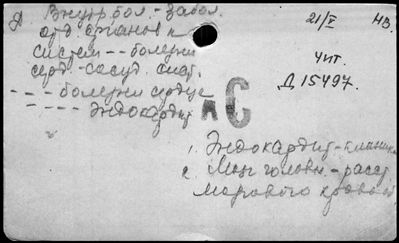 Внутр. бол. - Забол.
отд. органов и
систем -- болезни
серд.-сосуд. сист.
--- болезни сердца
---- Эндокардит
21/V НВ.
Чит.
Д 15497.
АС
1. Эндокардит - клиника
2. Мозг головн. - расстр.
мозгового кровооб.